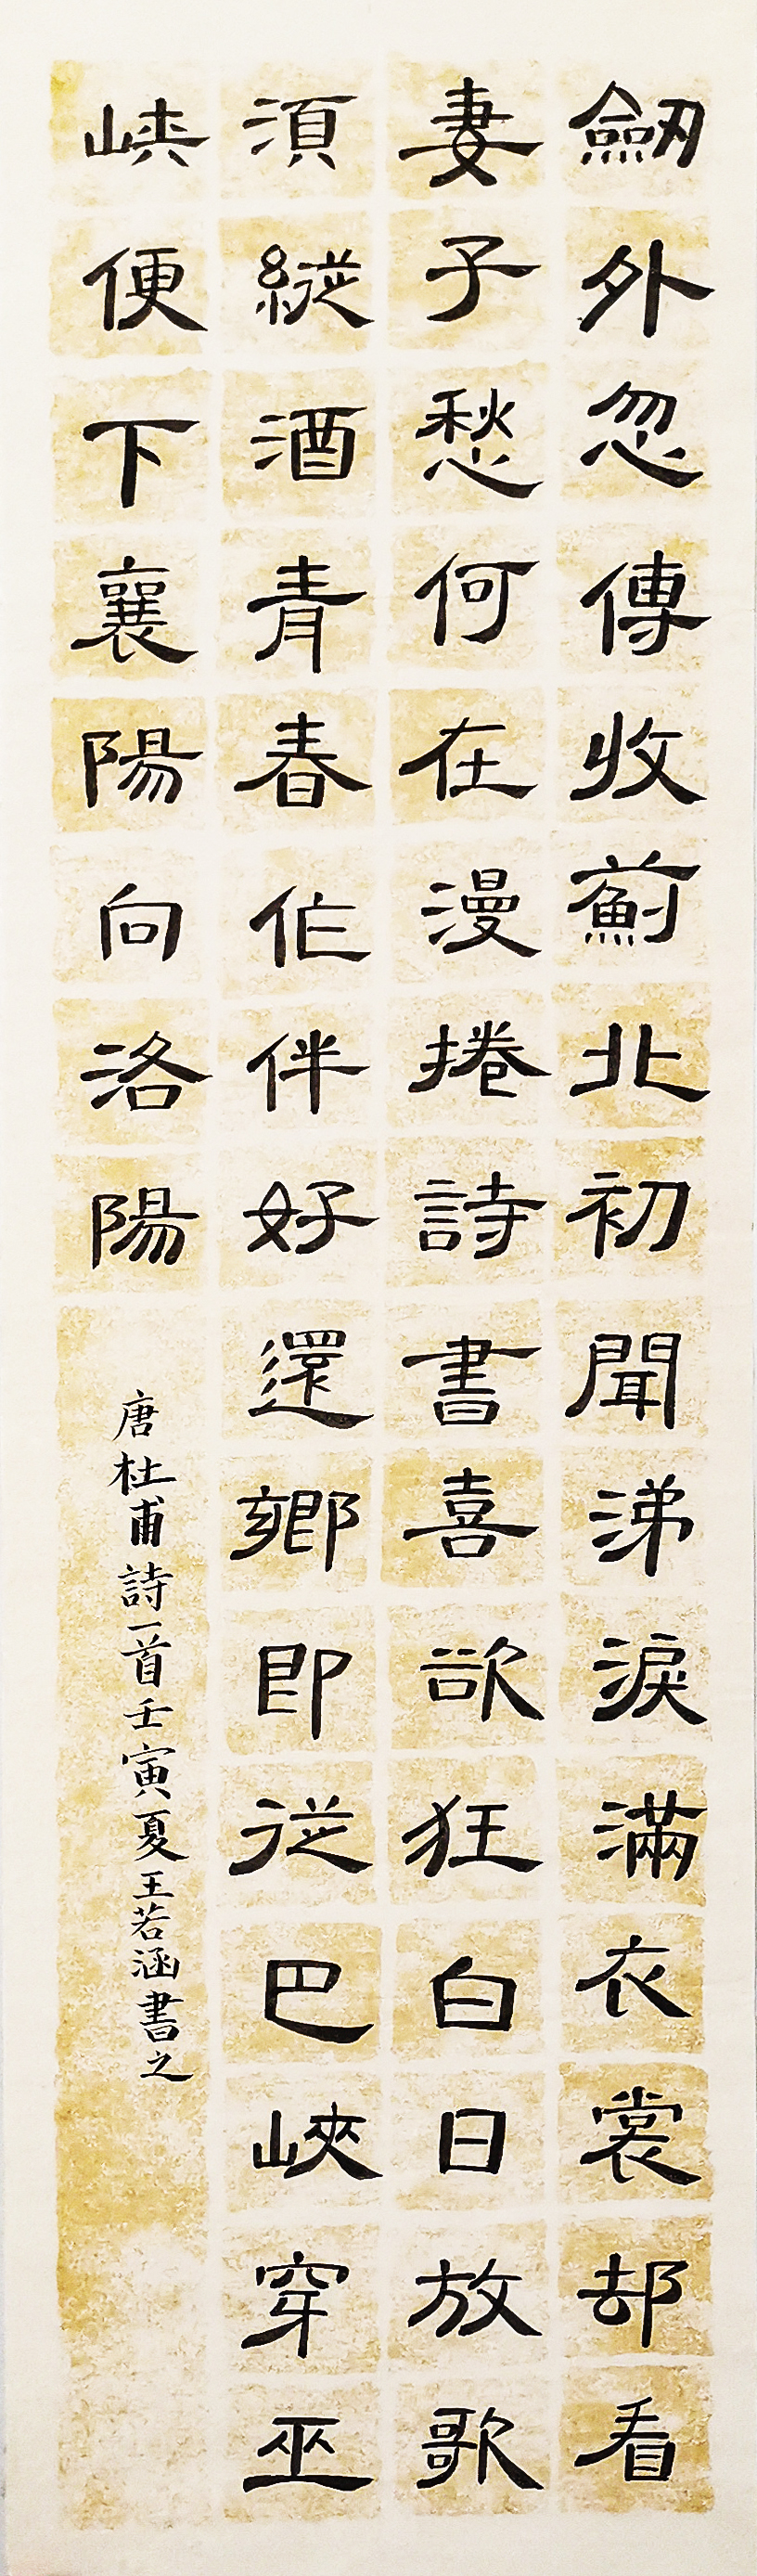 劒外忽傳收薊北初聞涕淚滿衣裳却看
妻子愁何在漫捲詩書喜欲狂白日放歌
須縱酒青春作伴好還鄉即從巴峽穿巫
峽便下襄陽向洛陽
唐杜甫詩一首壬寅夏王若涵書之